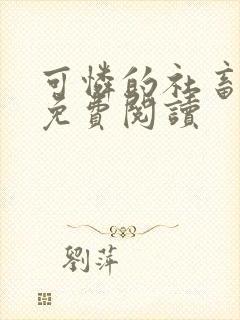 可憐的社畜
免費閱讀
劉萍